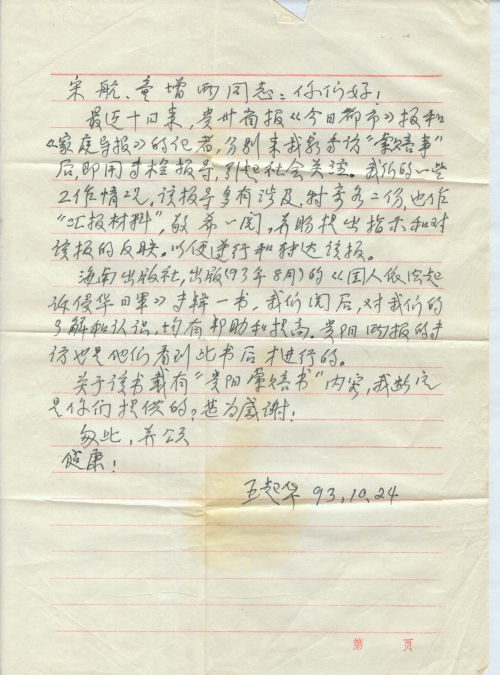 宋航、童增两同志：你们好！
最近十日来，贵州省报《今日都市》报和
《家庭导报》的记者，分别来我家专访“索赔事”
后，即用专栏报导，引起社会关注。我们的一些
工作情况，该报导多有涉及。特寄各二份，也作
“汇报材料”，敬希一阅，并盼提出指示和对
该报的反映。以便遵行和转达该报。
海南出版社，出版（93年8月）的《国人依法起
诉侵华日軍》专辑一书，我们阅后，对我们的
了解和认识，均有帮助和提高。贵阳两报的专
访也是他们看到此书后才进行的。
关于该书载有“贵阳索赔书”内容，我断定
是你们提供的？甚为感谢！
匆此，并颂
健康！
王起华 93.10.24
第 页